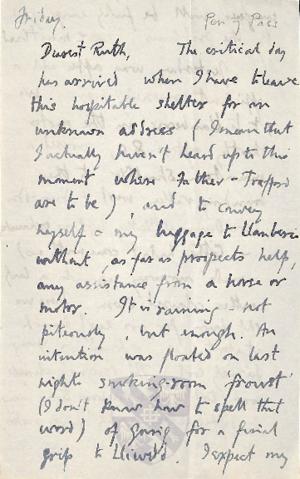 Friday. Pen y Pass
Dearest Ruth, The critical day
has arrived when I have to leave
this hospitable shelter for an
unknown address (I mean that
I actually haven't heard up to this
moment where Father - Trafford
are to be), and to convey
myself & my luggage to Llanberis
without, as far as prospects help,
any assistance from a horse or
motor. It is raining - not
piteously, but enough. An
intention was floated on last
night's smoking-room 'froust'
(I don't know how to spell that
word) of going for a final
grip to Lliwedd. I expect my